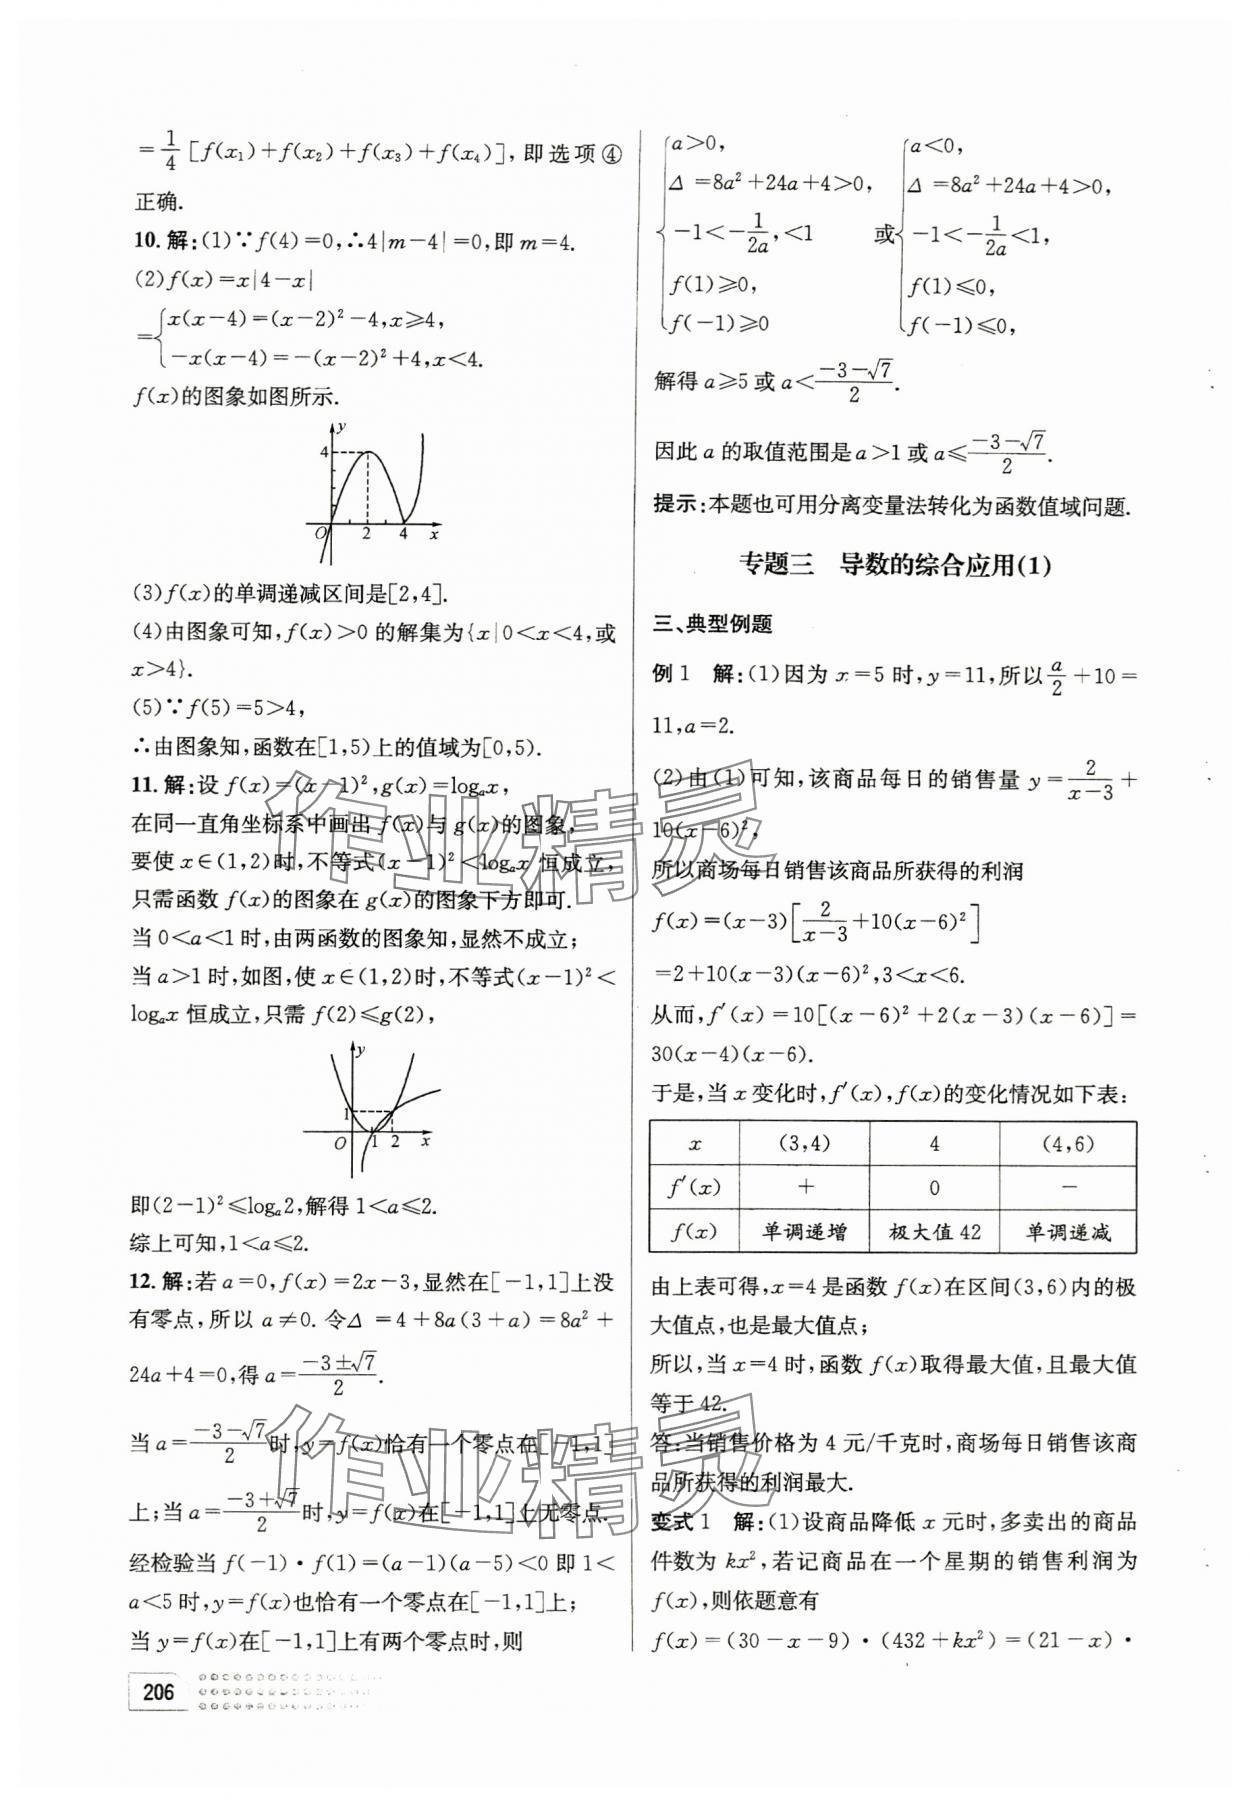 =1/4[f(x₁)+f(x₂)+f(x₃)+f(x₄)],即选项④
正确.
10.解:(1)∵f(4)=0,∴4|m-4|=0,即m=4.
(2)f(x)=x|4-x|
={x(x-4)=(x-2)²-4,x⩾4,
-x(x-4)=-(x-2)²+4,x<4.
f(x)的图象如图所示.
y
4
O 2 4 x
(3)f(x)的单调递减区间是[2,4].
(4)由图象可知,f(x)>0的解集为{x|0<x<4,或
x>4}.
(5)∵f(5)=5>4,
∴由图象知,函数在[1,5)上的值域为[0,5).
11.解:设f(x)=(x-1)²,g(x)=logₐx,
在同一直角坐标系中画出f(x)与g(x)的图象,
要使x∈(1,2)时,不等式(x-1)²<logₐx恒成立,
只需函数f(x)的图象在g(x)的图象下方即可.
当0<a<1时,由两函数的图象知,显然不成立;
当a>1时,如图,使x∈(1,2)时,不等式(x-1)²<
logₐx恒成立,只需f(2)⩽g(2),
y
1
O 1 2 x
即(2-1)²⩽logₐ2,解得1<a⩽2.
综上可知,1<a⩽2.
12.解:若a=0,f(x)=2x-3,显然在[-1,1]上没
有零点,所以a≠0.令Δ=4+8a(3+a)=8a²+
24a+4=0,得a=(-3±√7)/2.
当a=(-3-√7)/2时,y=f(x)恰有一个零点在[-1,1]
上;当a=(-3+√7)/2时,y=f(x)在[-1,1]上无零点.
经检验当f(-1)·f(1)=(a-1)(a-5)<0即1<
a<5时,y=f(x)也恰有一个零点在[-1,1]上;
当y=f(x)在[-1,1]上有两个零点时,则
206
{a>0,
Δ=8a²+24a+4>0,
-1<-1/2a,<1
f(1)⩾0,
f(-1)⩾0
或{a<0,
Δ=8a²+24a+4>0,
-1<-1/2a<1,
f(1)⩽0,
f(-1)⩽0,
解得a⩾5或a<(-3-√7)/2.
因此a的取值范围是a>1或a⩽(-3-√7)/2.
提示:本题也可用分离变量法转化为函数值域问题.
专题三 导数的综合应用(1)
三、典型例题
例1 解:(1)因为x=5时,y=11,所以a/2+10=
11,a=2.
(2)由(1)可知,该商品每日的销售量y=2/(x-3)+
10(x-6)²,
所以商场每日销售该商品所获得的利润
f(x)=(x-3)[2/(x-3)+10(x-6)²]
=2+10(x-3)(x-6)²,3<x<6.
从而,f′(x)=10[(x-6)²+2(x-3)(x-6)]=
30(x-4)(x-6).
于是,当x变化时,f′(x),f(x)的变化情况如下表:
x (3,4) 4 (4,6)
f′(x) + 0 -
f(x) 单调递增 极大值42 单调递减
由上表可得,x=4是函数f(x)在区间(3,6)内的极
大值点,也是最大值点;
所以,当x=4时,函数f(x)取得最大值,且最大值
等于42.
答:当销售价格为4元/千克时,商场每日销售该商
品所获得的利润最大.
变式1 解:(1)设商品降低x元时,多卖出的商品
件数为kx²,若记商品在一个星期的销售利润为
f(x),则依题意有
f(x)=(30-x-9)·(432+kx²)=(21-x)·
作业精灵
作业精灵